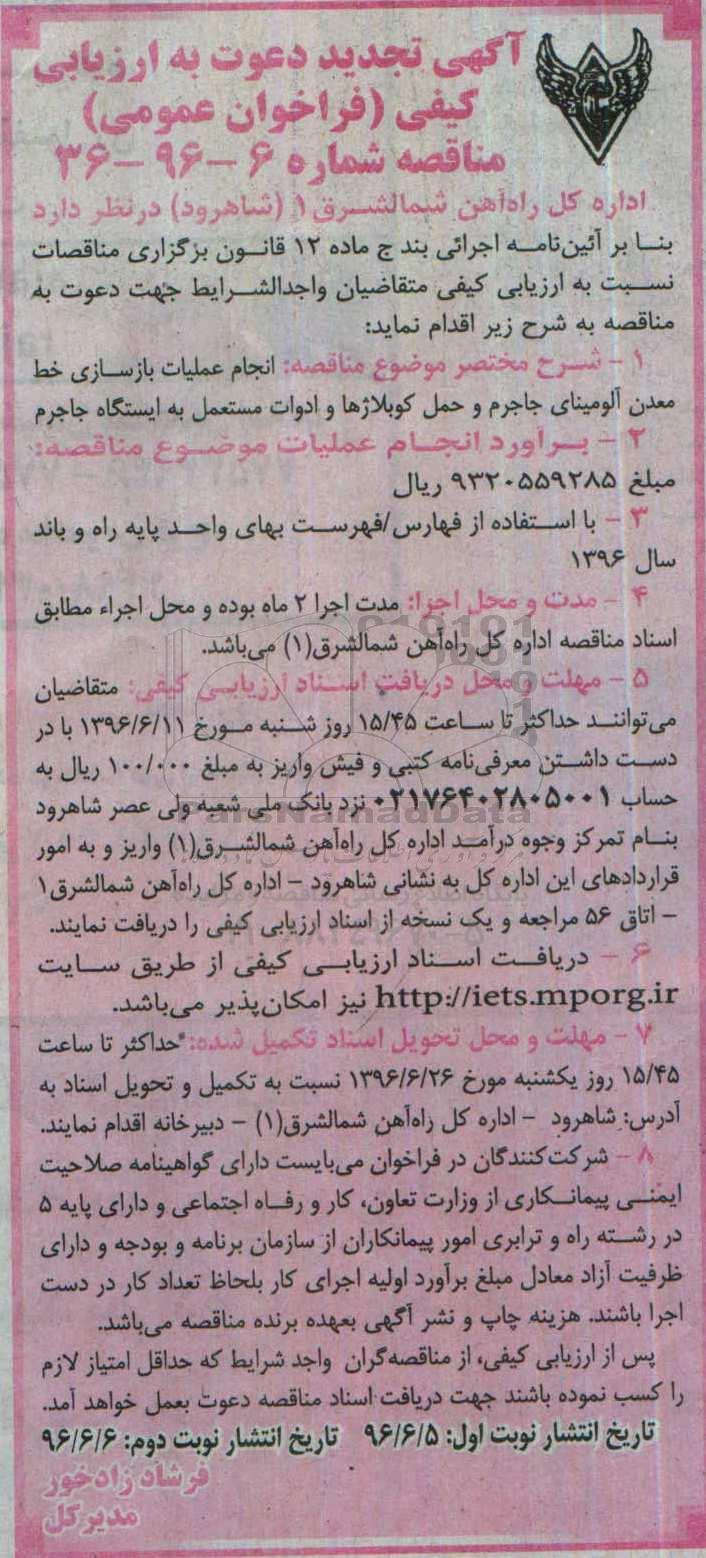 آگهی تجدید دعوت به ارزیابی
کیفی (فراخوان عمومی)
مناقصه شماره ۶ - ۹۶ - ۳۶
اداره کل راه‌آهن شمالشرق ۱ (شاهرود) درنظر دارد
بنا بر آئین‌نامه اجرائی بند ج ماده ۱۲ قانون بزگزاری مناقصات
نسبت به ارزیابی کیفی متقاضیان واجدالشرایط جهت دعوت به
مناقصه به شرح زیر اقدام نماید:
۱ - شرح مختصر موضوع مناقصه: انجام عملیات بازسازی خط
معدن آلومینای جاجرم و حمل کوبلاژها و ادوات مستعمل به ایستگاه جاجرم
۲ - برآورد انجام عملیات موضوع مناقصه:
مبلغ ۹۳۲۰۵۵۹۲۸۵ ریال
۳ - با استفاده از فهارس/فهرست بهای واحد پایه راه و باند
سال ۱۳۹۶
۴ - مدت و محل اجرا: مدت اجرا ۲ ماه بوده و محل اجراء مطابق
اسناد مناقصه اداره کل راه‌آهن شمالشرق(۱) می‌باشد.
۵ - مهلت و محل دریافت اسناد ارزیابی کیفی: متقاضیان
می‌توانند حداکثر تا ساعت ۱۵/۴۵ روز شنبه مورخ ۱۳۹۶/۶/۱۱ با در
دست داشتن معرفی‌نامه کتبی و فیش واریز به مبلغ ۱۰۰/۰۰۰ ریال به
حساب ۰۲۱۷۶۴۰۲۸۰۵۰۰۱ نزد بانک ملی شعبه ولی عصر شاهرود
بنام تمرکز وجوه درآمد اداره کل راه‌آهن شمالشرق(۱) واریز و به امور
قراردادهای این اداره کل به نشانی شاهرود - اداره کل راه‌آهن شمالشرق۱
- اتاق ۵۶ مراجعه و یک نسخه از اسناد ارزیابی کیفی را دریافت نمایند.
۶ - دریافت اسناد ارزیابی کیفی از طریق سایت
http://iets.mporg.ir نیز امکان‌پذیر می‌باشد.
۷ - مهلت و محل تحویل اسناد تکمیل شده: حداکثر تا ساعت
۱۵/۴۵ روز یکشنبه مورخ ۱۳۹۶/۶/۲۶ نسبت به تکمیل و تحویل اسناد به
آدرس: شاهرود - اداره کل راه‌آهن شمالشرق(۱) - دبیرخانه اقدام نمایند.
۸ - شرکت‌کنندگان در فراخوان می‌بایست دارای گواهینامه صلاحیت
ایمنی پیمانکاری از وزارت تعاون، کار و رفاه اجتماعی و دارای پایه ۵
در رشته راه و ترابری امور پیمانکاران از سازمان برنامه و بودجه و دارای
ظرفیت آزاد معادل مبلغ برآورد اولیه اجرای کار بلحاظ تعداد کار در دست
اجرا باشند. هزینه چاپ و نشر آگهی بعهده برنده مناقصه می‌باشد.
پس از ارزیابی کیفی، از مناقصه‌گران واجد شرایط که حداقل امتیاز لازم
را کسب نموده باشند جهت دریافت اسناد مناقصه دعوت بعمل خواهد آمد.
تاریخ انتشار نوبت اول: ۹۶/۶/۵ تاریخ انتشار نوبت دوم: ۹۶/۶/۶
فرشاد زادخور
مدیرکل